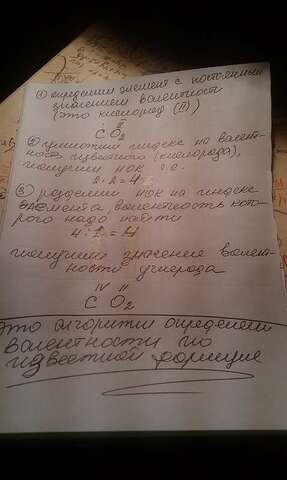 ① определим элемент с постоянным
значением валентности
(это кислород (II))
II
C O2
② умножим индекс на валент-
ность известного (кислорода),
получим НОК т.е.
2·2=4
③ разделим НОК на индекс
элемента, валентность кото-
рого надо найти
4:1=4
получили значение валент-
ности углерода
IV II
C O2
Это алгоритм определен
валентности по
известной формуле